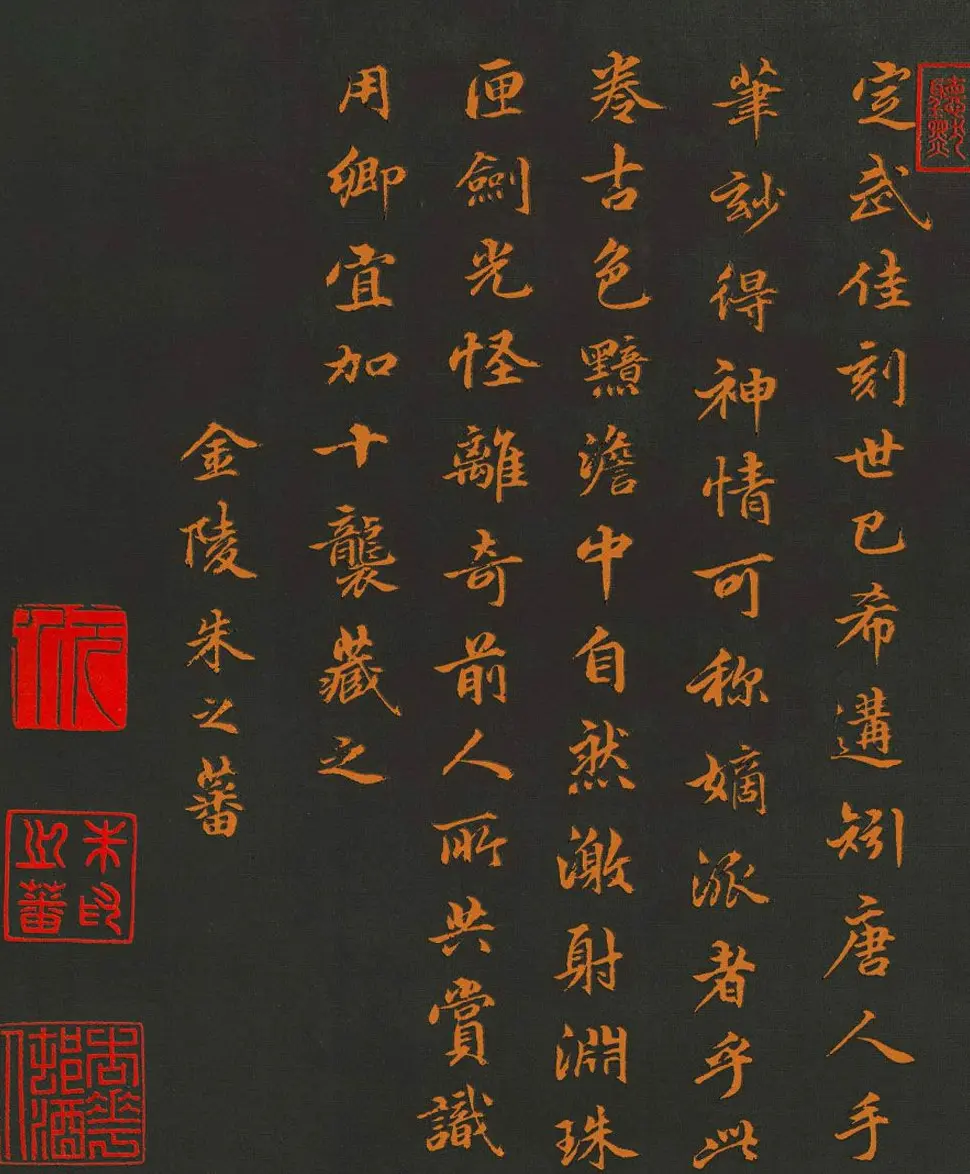 定武佳刻世已希遘矧唐人手
筆玅得神情可称嫡派者乎此
卷古色黯澹中自然激射淵珠
匣劍光怪離奇前人所共賞識
用卿宜加十襲藏之
金陵朱之蕃
朱印
之蕃